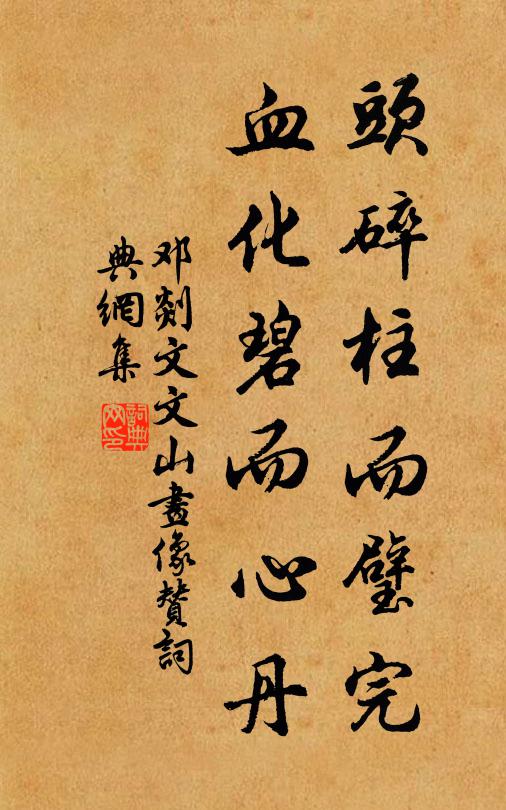 頭碎柱而璧完
血化碧而心丹
邓剡文文山畫像贊詞
典網集
詞典网印